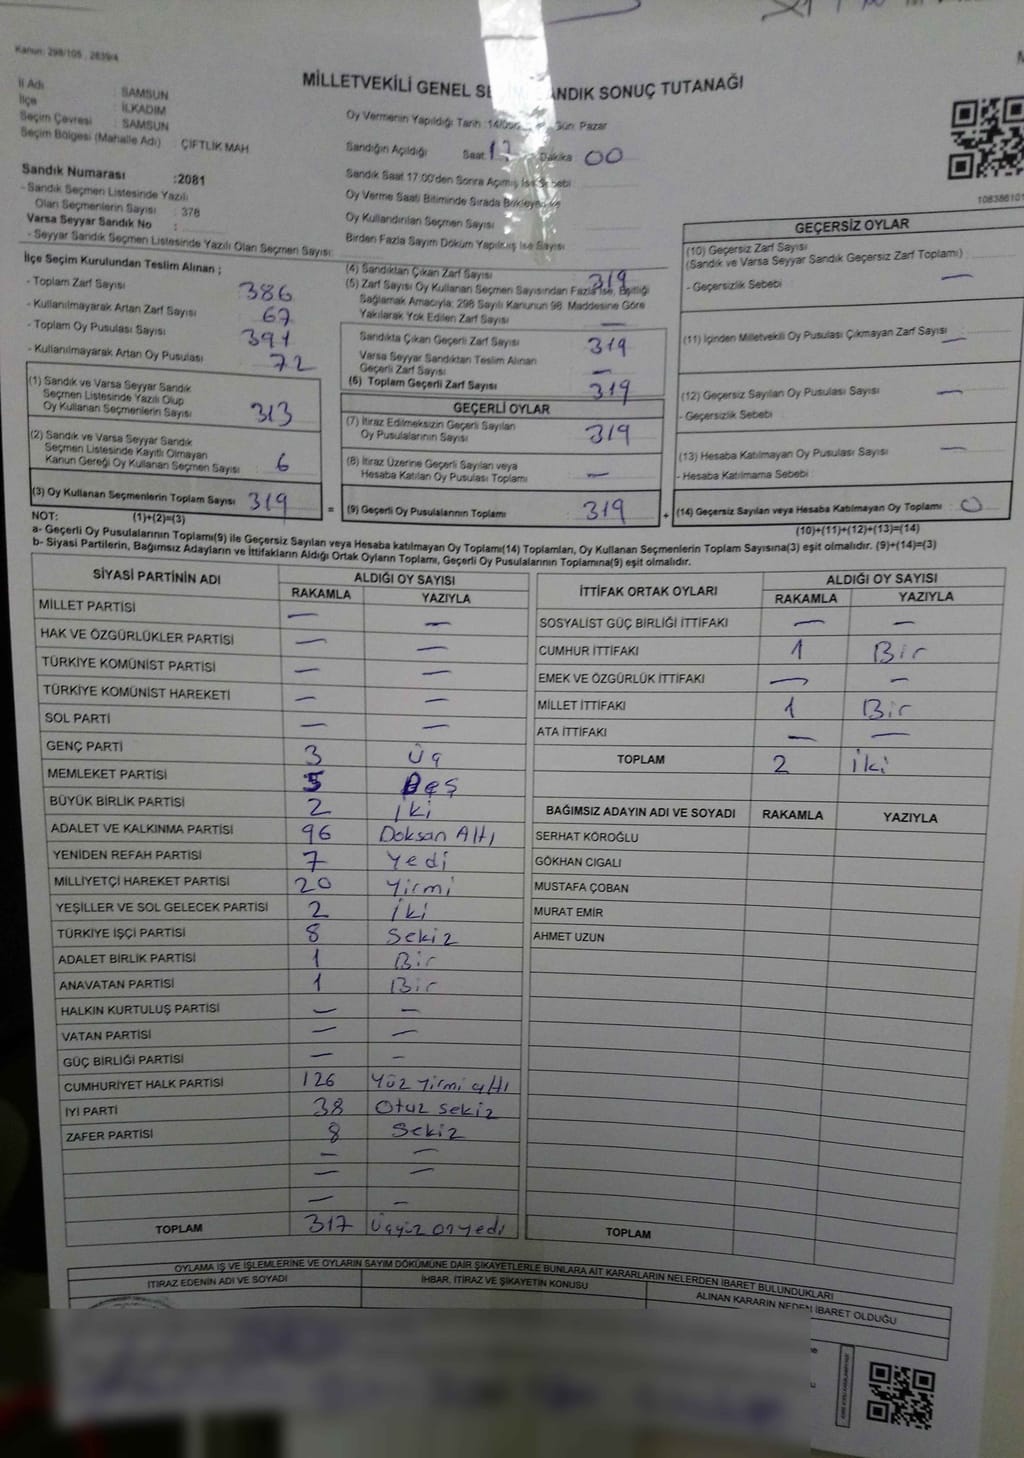 Kanun: 298/105 , 2839/4
MİLLETVEKİLİ GENEL SEÇİM SANDIK SONUÇ TUTANAĞI
İl Adı : SAMSUN
İlçe : İLKADIM
Seçim Çevresi : SAMSUN
Seçim Bölgesi (Mahalle Adı) : ÇİFTLİK MAH
Sandık Numarası :2081
- Sandık Seçmen Listesinde Yazılı
Olan Seçmenlerin Sayısı : 378
Varsa Seyyar Sandık No :
- Seyyar Sandık Seçmen Listesinde Yazılı Olan Seçmen Sayısı:
İlçe Seçim Kurulundan Teslim Alınan ;
- Toplam Zarf Sayısı 386
- Kullanılmayarak Artan Zarf Sayısı 67
- Toplam Oy Pusulası Sayısı 391
- Kullanılmayarak Artan Oy Pusulası 72
(1) Sandık ve Varsa Seyyar Sandık
Seçmen Listesinde Yazılı Olup
Oy Kullanan Seçmenlerin Sayısı 313
(2) Sandık ve Varsa Seyyar Sandık
Seçmen Listesinde Kayıtlı Olmayan
Kanun Gereği Oy Kullanan Seçmen Sayısı 6
(3) Oy Kullanan Seçmenlerin Toplam Sayısı 319 =
Oy Vermenin Yapıldığı Tarih :14/05 Gün: Pazar
Sandığın Açıldığı Saat: 17 Dakika 00
Sandık Saat 17:00'den Sonra Açılmış İse Sebebi
Oy Verme Saati Bitiminde Sırada Bekleyen
Oy Kullandırılan Seçmen Sayısı
Birden Fazla Sayım Döküm Yapılmış İse Sayısı
(4) Sandıktan Çıkan Zarf Sayısı 319
(5) Zarf Sayısı Oy Kullanan Seçmen Sayısından Fazla İse, Eşitliği
Sağlamak Amacıyla; 298 Sayılı Kanunun 98. Maddesine Göre
Yakılarak Yok Edilen Zarf Sayısı —
Sandıkta Çıkan Geçerli Zarf Sayısı 319
Varsa Seyyar Sandıktan Teslim Alınan
Geçerli Zarf Sayısı —
(6) Toplam Geçerli Zarf Sayısı 319
GEÇERLİ OYLAR
(7) İtiraz Edilmeksizin Geçerli Sayılan
Oy Pusulalarının Sayısı 319
(8) İtiraz Üzerine Geçerli Sayılan veya
Hesaba Katılan Oy Pusulası Toplamı —
(9) Geçerli Oy Pusulalarının Toplamı 319 +
GEÇERSİZ OYLAR
(10) Geçersiz Zarf Sayısı
(Sandık ve Varsa Seyyar Sandık Geçersiz Zarf Toplamı)
- Geçersizlik Sebebi —
(11) İçinden Milletvekili Oy Pusulası Çıkmayan Zarf Sayısı —
(12) Geçersiz Sayılan Oy Pusulası Sayısı —
- Geçersizlik Sebebi
(13) Hesaba Katılmayan Oy Pusulası Sayısı —
- Hesaba Katılmama Sebebi :
(14) Geçersiz Sayılan veya Hesaba Katılmayan Oy Toplamı : 0
NOT: (1)+(2)=(3) (10)+(11)+(12)+(13)=(14)
a- Geçerli Oy Pusulalarının Toplamı(9) ile Geçersiz Sayılan veya Hesaba katılmayan Oy Toplamı(14) Toplamları, Oy Kullanan Seçmenlerin Toplam Sayısına(3) eşit olmalıdır. (9)+(14)=(3)
b- Siyasi Partilerin, Bağımsız Adayların ve İttifakların Aldığı Ortak Oyların Toplamı, Geçerli Oy Pusulalarının Toplamına(9) eşit olmalıdır.
SİYASİ PARTİNİN ADI ALDIĞI OY SAYISI
RAKAMLA YAZIYLA
MİLLET PARTİSİ — —
HAK VE ÖZGÜRLÜKLER PARTİSİ — —
TÜRKİYE KOMÜNİST PARTİSİ — —
TÜRKİYE KOMÜNİST HAREKETİ — —
SOL PARTİ — —
GENÇ PARTİ 3 Üç
MEMLEKET PARTİSİ 5 Beş
BÜYÜK BİRLİK PARTİSİ 2 iki
ADALET VE KALKINMA PARTİSİ 96 Doksan Altı
YENİDEN REFAH PARTİSİ 7 Yedi
MİLLİYETÇİ HAREKET PARTİSİ 20 Yirmi
YEŞİLLER VE SOL GELECEK PARTİSİ 2 İki
TÜRKİYE İŞÇİ PARTİSİ 8 Sekiz
ADALET BİRLİK PARTİSİ 1 Bir
ANAVATAN PARTİSİ 1 Bir
HALKIN KURTULUŞ PARTİSİ — —
VATAN PARTİSİ — —
GÜÇ BİRLİĞİ PARTİSİ — —
CUMHURİYET HALK PARTİSİ 126 Yüz Yirmi altı
İYİ PARTİ 38 Otuz sekiz
ZAFER PARTİSİ 8 Sekiz
— —
— —
— —
TOPLAM 317 Üçyüz onyedi
İTTİFAK ORTAK OYLARI ALDIĞI OY SAYISI
RAKAMLA YAZIYLA
SOSYALİST GÜÇ BİRLİĞİ İTTİFAKI — —
CUMHUR İTTİFAKI 1 Bir
EMEK VE ÖZGÜRLÜK İTTİFAKI — —
MİLLET İTTİFAKI 1 Bir
ATA İTTİFAKI — —
TOPLAM 2 İki
BAĞIMSIZ ADAYIN ADI VE SOYADI RAKAMLA YAZIYLA
SERHAT KÖROĞLU
GÖKHAN CIGALI
MUSTAFA ÇOBAN
MURAT EMİR
AHMET UZUN
TOPLAM
OYLAMA İŞ VE İŞLEMLERİNE VE OYLARIN SAYIM DÖKÜMÜNE DAİR ŞİKAYETLERLE BUNLARA AİT KARARLARIN NELERDEN İBARET BULUNDUKLARI
İTİRAZ EDENİN ADI VE SOYADI İHBAR, İTİRAZ VE ŞİKAYETİN KONUSU ALINAN KARARIN NEDEN İBARET OLDUĞU